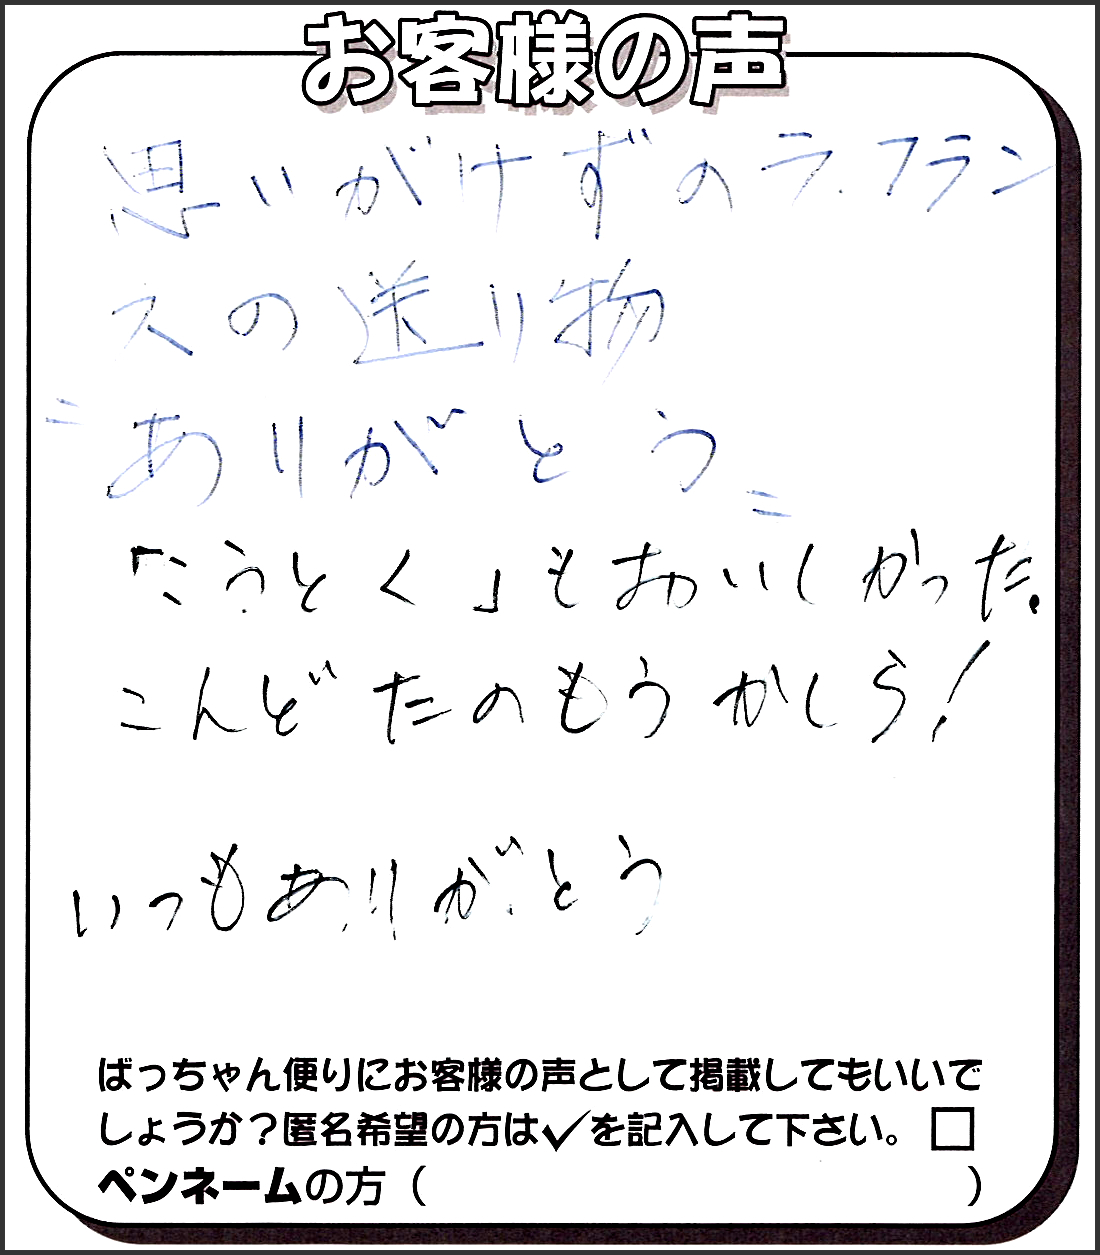 お客様の声
思いがけずのラ.フラン
スの送り物
"ありがとう"
「こうとく」もおいしかった.
こんどたのもうかしら!
いつもありがとう
ばっちゃん便りにお客様の声として掲載してもいいで
しょうか?匿名希望の方は✓を記入して下さい。□
ペンネームの方( )